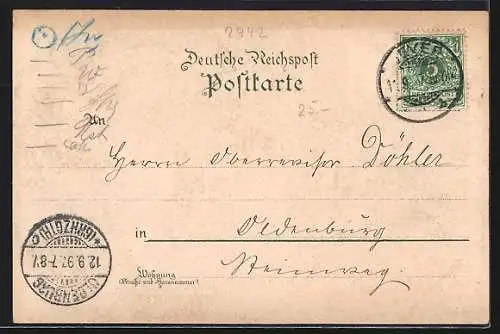 2942
Deutsche Reichspost
Postkarte
25.-
An
Herrn Oberrevisor Döhler
in Oldenburg
Steinweg
Wohnung
(Straße und Hausnummer)
JEVER
5
OLDENBURG
12.9.97.7-8V.
*(GRHZGTH.)*